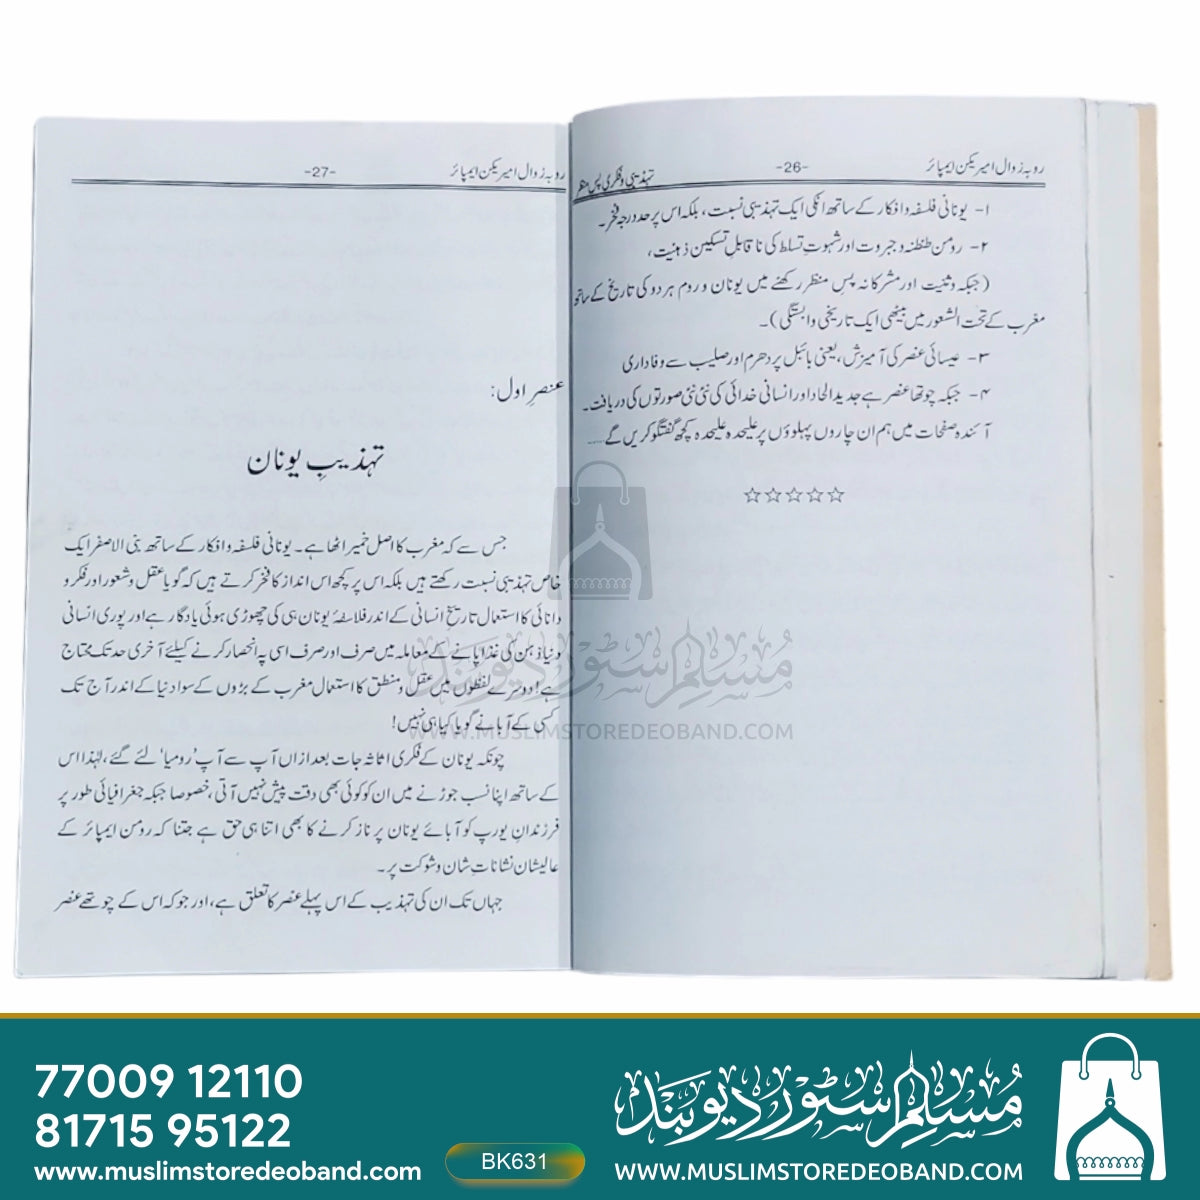 روبہ زوال امیریکن ایمپائر
-26-
تہذیبی و فکری پس منظر
۱- یونانی فلسفہ و افکار کے ساتھ انکی ایک تہذیبی نسبت، بلکہ اس پر حد درجہ فخر۔
۲- رومن طنطنہ و جبروت اور شہوتِ تسلط کی ناقابلِ تسکین ذہنیت،
(جبکہ وثنیت اور مشرکانہ پسِ منظر رکھنے میں یونان و روم ہر دو کی تاریخ کے ساتھ
مغرب کے تحت الشعور میں بیٹھی ایک تاریخی وابستگی)۔
۳- عیسائی عنصر کی آمیزش، یعنی بائبل پر دھرم اور صلیب سے وفاداری
۴- جبکہ چوتھا عنصر ہے جدید الحاد اور انسانی خدائی کی نئی نئی صورتوں کی دریافت۔
آئندہ صفحات میں ہم ان چاروں پہلوؤں پر علیحدہ علیحدہ کچھ گفتگو کریں گے.....
☆☆☆☆☆
روبہ زوال امیریکن ایمپائر
-27-
عنصرِ اول:
تہذیبِ یونان
جس سے کہ مغرب کا اصل خمیر اٹھا ہے۔ یونانی فلسفہ و افکار کے ساتھ بنی الاصفر ایک
خاص تہذیبی نسبت رکھتے ہیں بلکہ اس پر کچھ اس انداز کا فخر کرتے ہیں کہ گویا عقل و شعور اور فکر و
دانائی کا استعمال تاریخِ انسانی کے اندر فلاسفۂ یونان ہی کی چھوڑی ہوئی یادگار ہے اور پوری انسانی
دنیا ذہن کی غذا پانے کے معاملہ میں صرف اور صرف اسی پہ انحصار کرنے کیلئے آخری حد تک محتاج
ہے! دوسرے لفظوں میں عقل و منطق کا استعمال مغرب کے بڑوں کے سوا دنیا کے اندر آج تک
کسی کے آبا نے گویا کیا ہی نہیں!
چونکہ یونان کے فکری اثاثہ جات بعد ازاں آپ سے آپ 'رومیا' لئے گئے، لہٰذا اس
کے ساتھ اپنا نسب جوڑنے میں ان کو کوئی بھی دقت پیش نہیں آتی، خصوصا جبکہ جغرافیائی طور پر
فرزندانِ یورپ کو آبائے یونان پر ناز کرنے کا بھی اتنا ہی حق ہے جتنا کہ رومن ایمپائر کے
عالیشان نشاناتِ شان و شوکت پر۔
جہاں تک ان کی تہذیب کے اس پہلے عنصر کا تعلق ہے، اور جو کہ اس کے چوتھے عنصر
مُسلم سٹور دیوبند
WWW.MUSLIMSTOREDEOBAND.COM
77009 12110
81715 95122
www.muslimstoredeoband.com
BK631
مُسلم سٹور دیوبند
WWW.MUSLIMSTOREDEOBAND.COM